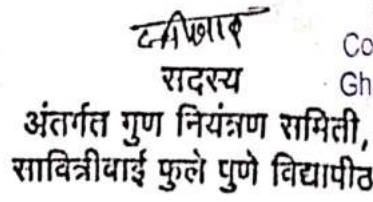 Co
सदस्य
Gh
अंतर्गत गुण नियंत्रण समिती,
सावित्रीबाई फुले पुणे विद्यापीठ